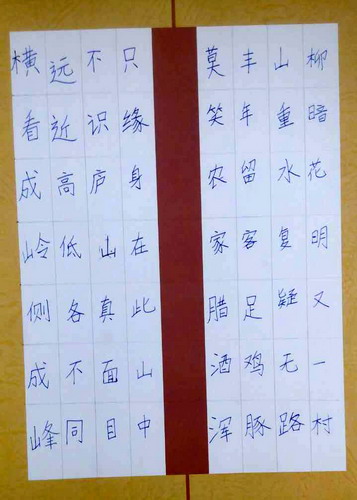 横看成岭侧成峰
远近高低各不同
不识庐山真面目
只缘身在此山中
莫笑农家腊酒浑
丰年留客足鸡豚
山重水复疑无路
柳暗花明又一村